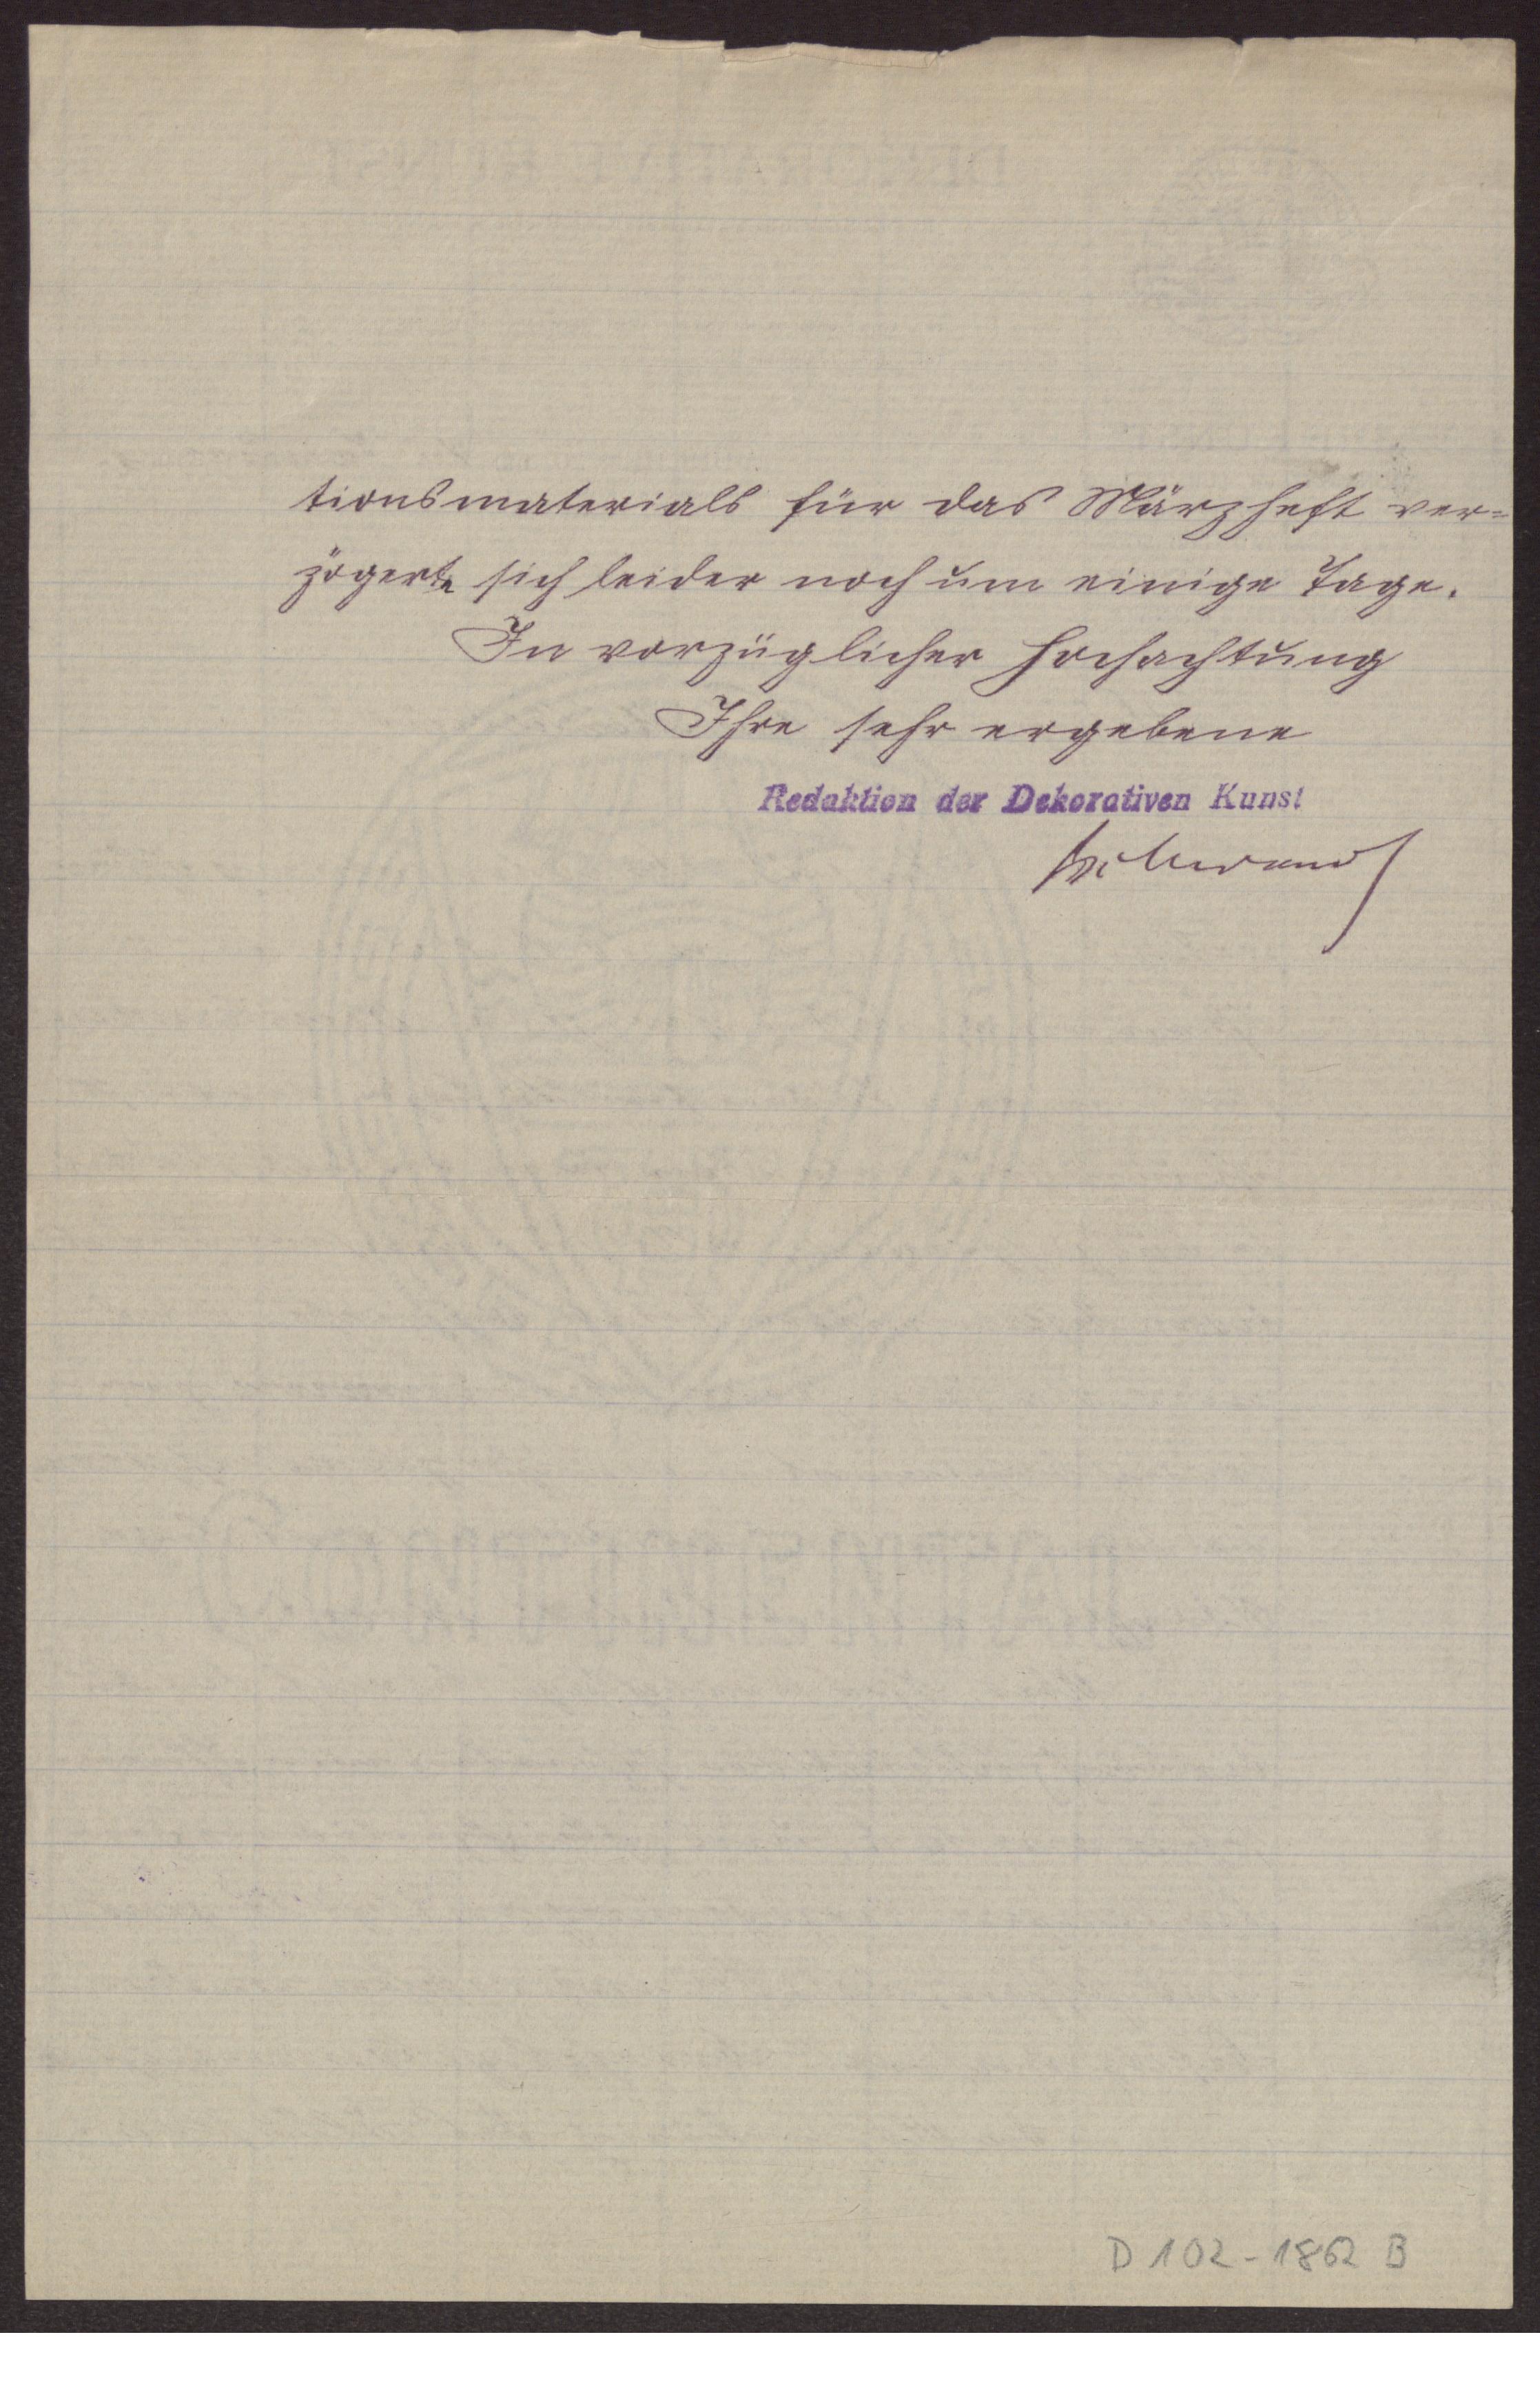 tionsmaterials für das Märzheft ver=
zögerte sich leider noch um einige Tage.
In vorzüglicher Hochachtung
Ihre sehr ergebene
Redaktion der Dekorativen Kunst
D 102 - 1862 B